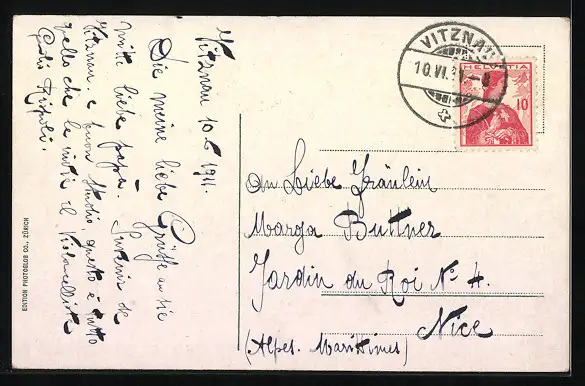 Vitznau 10.6.1911.
Die meine liebe Grüsse an sie
mitt liebe papa. Suvenir de
Vitznau. e buon studio, questo è tutto
quello che le invia il Violoncellista
Rispoli.
EDITION PHOTOGLOB CO., ZÜRICH
VITZNAU
10.VI.
HELVETIA
10
An Liebe Fräulein
Marga Buttner
Jardin du Roi No 4.
Nice
(Alpes. Maritimes)